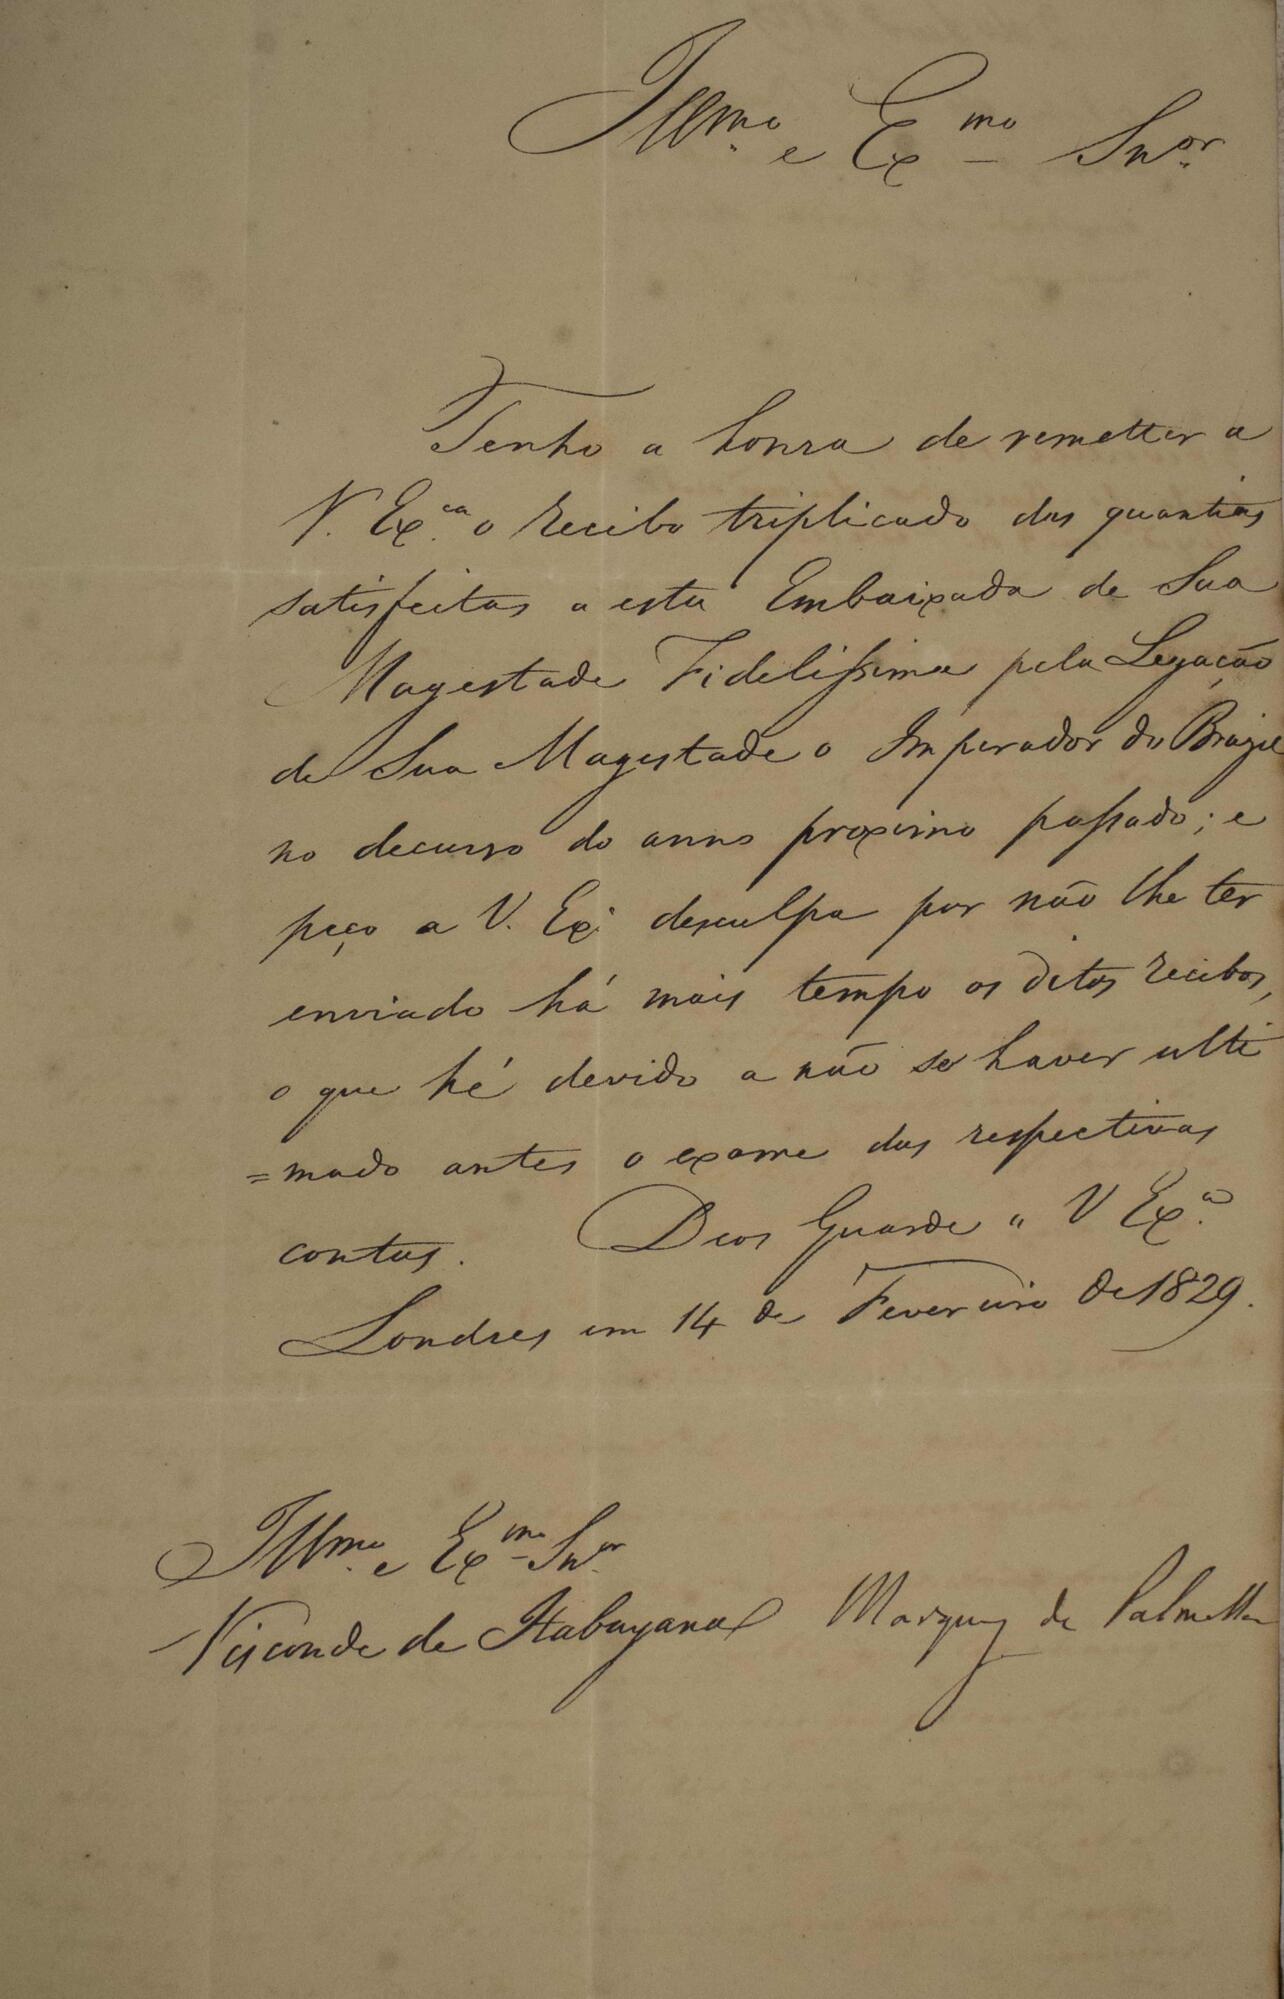 Illmo. e Exmo Snor.
Tenho a honra de remetter a
V. Exca. o recibo triplicado das quantias
satisfeitas a esta Embaixada de Sua
Magestade Fidelissima pela Legação
de Sua Magestade o Imperador do Brazil
no decurso do anno proximo passado; e
peço a V. Exa. desculpa por não lhe ter
enviado há mais tempo os ditos recibos,
o que hé devido a não se haver ulti
=mado antes o exame das respectivas
contas. Deos Guarde a V Exa.
Londres em 14 de Fevereiro de 1829.
Illmo. e Exmo Snor.
Visconde de Itabayana Marquez de Palmella